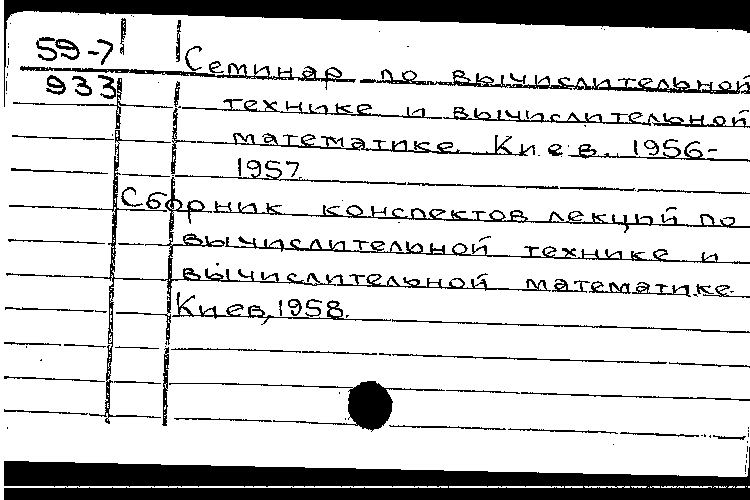 59-7
933
Семинар по вычислительной
технике и вычислительной
математике. Киев. 1956-
1957
Сборник конспектов лекций по
вычислительной технике и
вычислительной математике.
Киев, 1958.